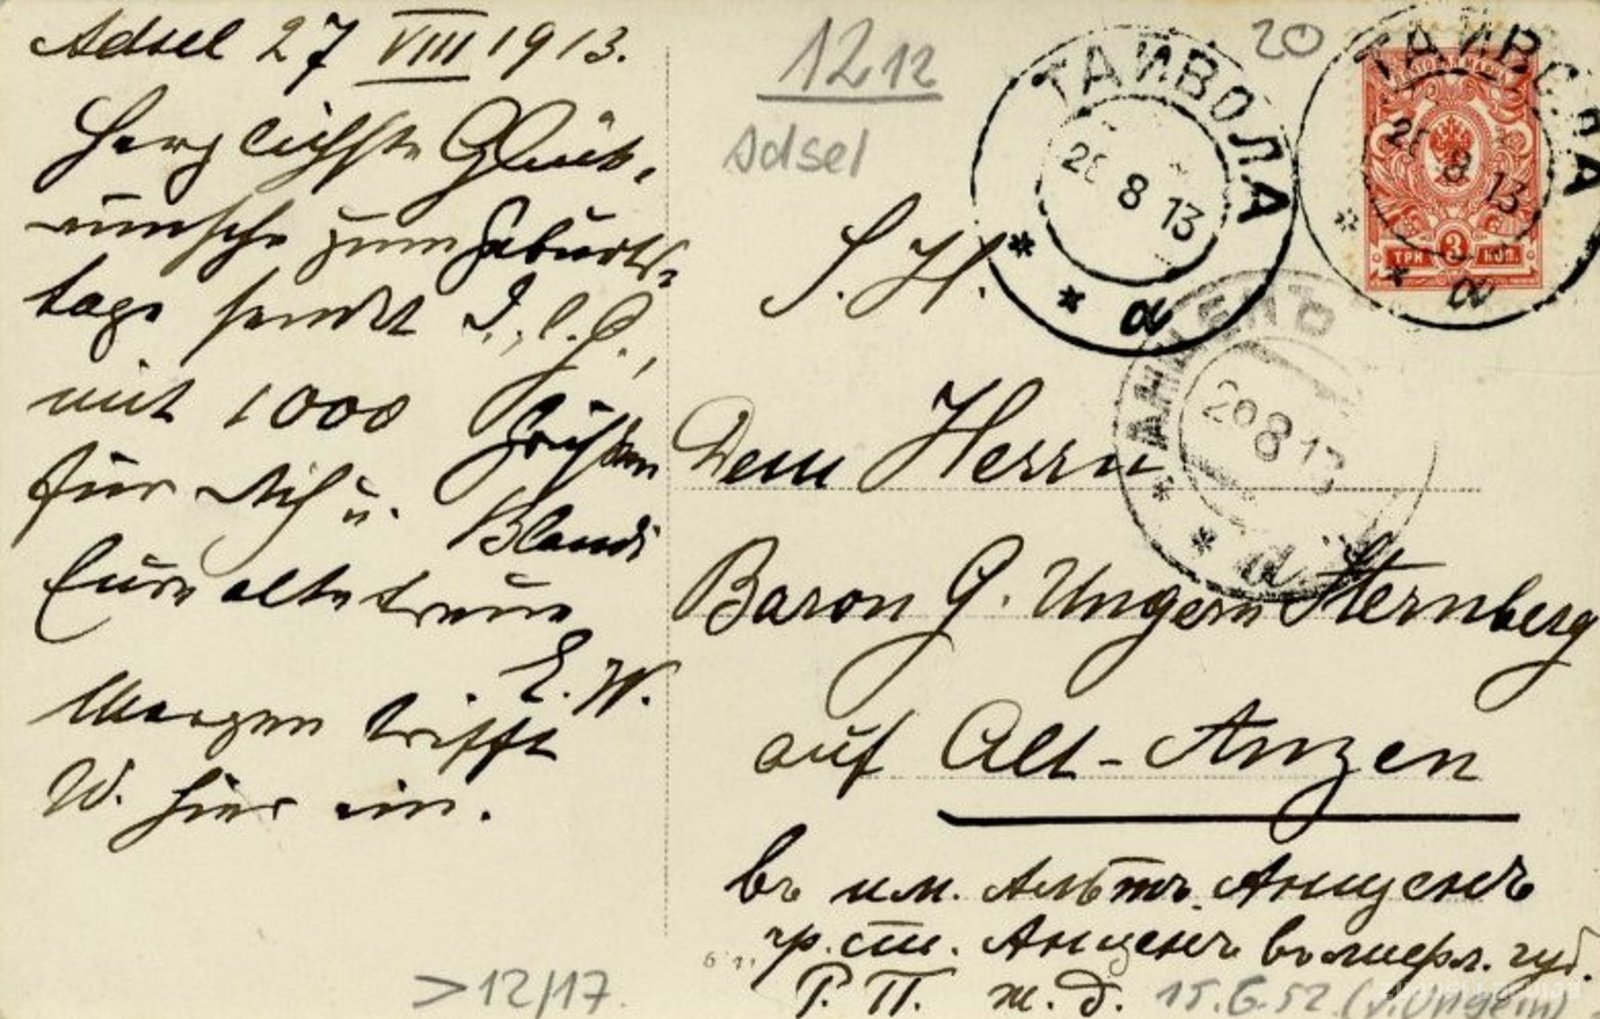 Adsel 27 VIII 1913.
Herzlichste Glück-
wünsche zum Geburts-
tage sendet
mit 1000 Grüssen
für Dich u. Blandi
Eure alte treue
E. W.
Morgen trifft
W. hier ein.
12 12
Adsel
20
ТАЙВОЛА
8 13
а
ТАЙВОЛА
8 13
а
ТРИ 3 КОП.
АНЦЕНЪ
29 8 13
а
S. H.
Dem Herrn
Baron G. Ungern Sternberg
auf Alt-Anzen
въ им. Альтъ Анценъ
чр. ст. Анценъ Лифл. губ.
Р. П. ж. д.
>12/17.
15.6.52 (v. Ungern)